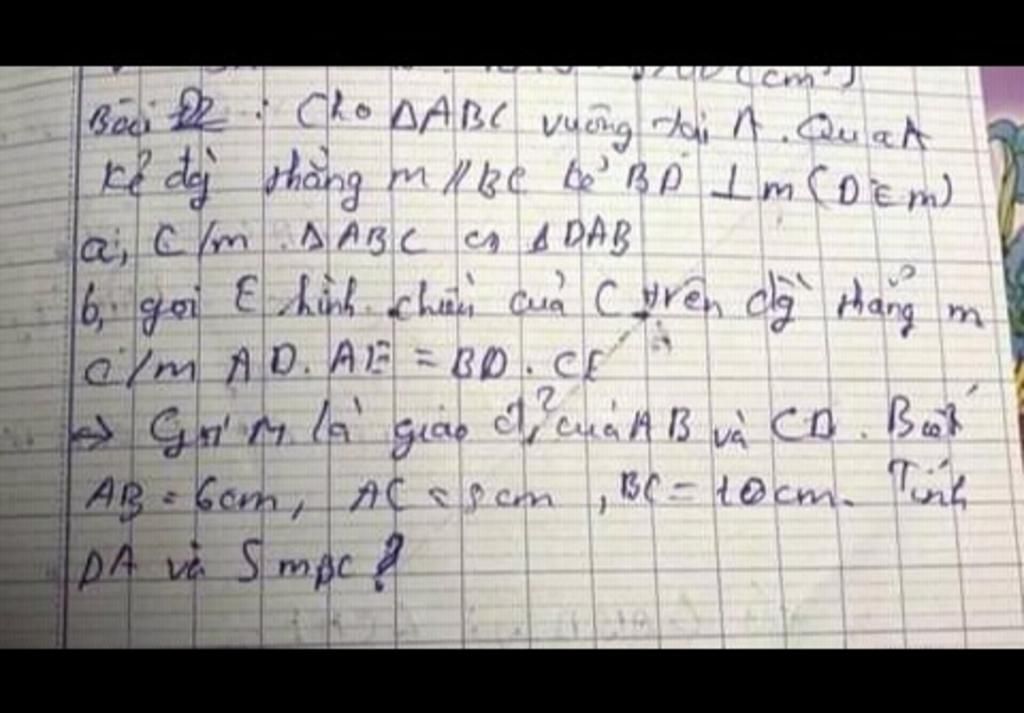 (cm²)
Bài : Cho ΔABC vuông tại A. Qua A
kẻ đg̀ thẳng m // BC kẻ BD ⊥ m (D ∈ m)
a, C/m ΔABC ∽ ΔDAB
b, gọi E hình chiếu của C trên đg̀ thẳng m
C/m AD. AE = BD. CE
Gọi M là giao đ' của AB và CD. Biết
AB = 6cm, AC = 8cm, BC = 10cm. Tính
DA và S MBC?